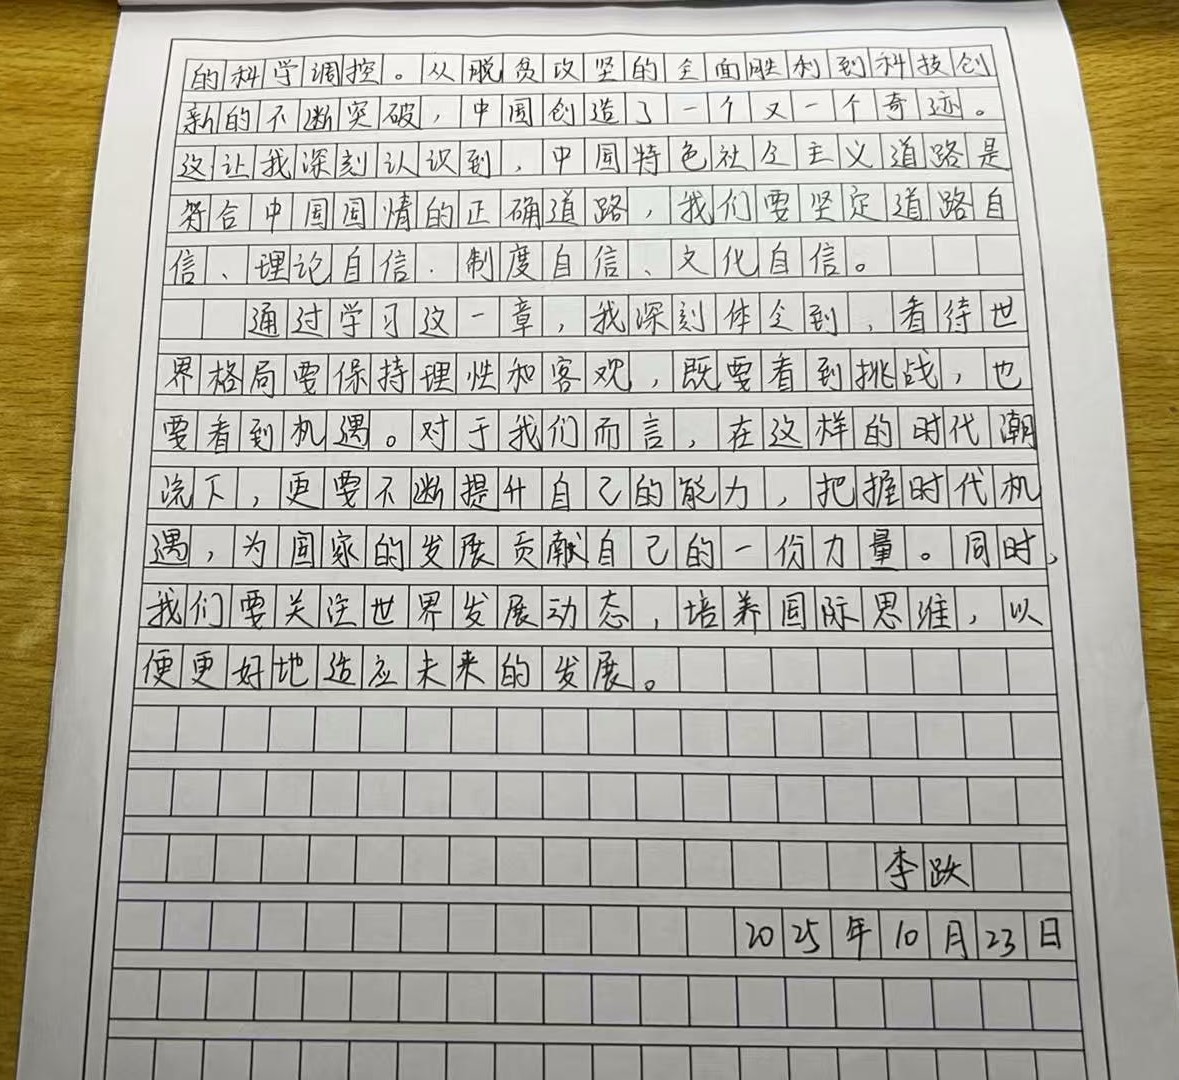 的科学调控。从脱贫攻坚的全面胜利到科技创
新的不断突破，中国创造了一个又一个奇迹。
这让我深刻认识到，中国特色社会主义道路是
符合中国国情的正确道路，我们要坚定道路自
信、理论自信、制度自信、文化自信。
通过学习这一章，我深刻体会到，看待世
界格局要保持理性和客观，既要看到挑战，也
要看到机遇。对于我们而言，在这样的时代潮
流下，更要不断提升自己的能力，把握时代机
遇，为国家的发展贡献自己的一份力量。同时，
我们要关注世界发展动态，培养国际思维，以
便更好地适应未来的发展。
李跃
2025年10月23日